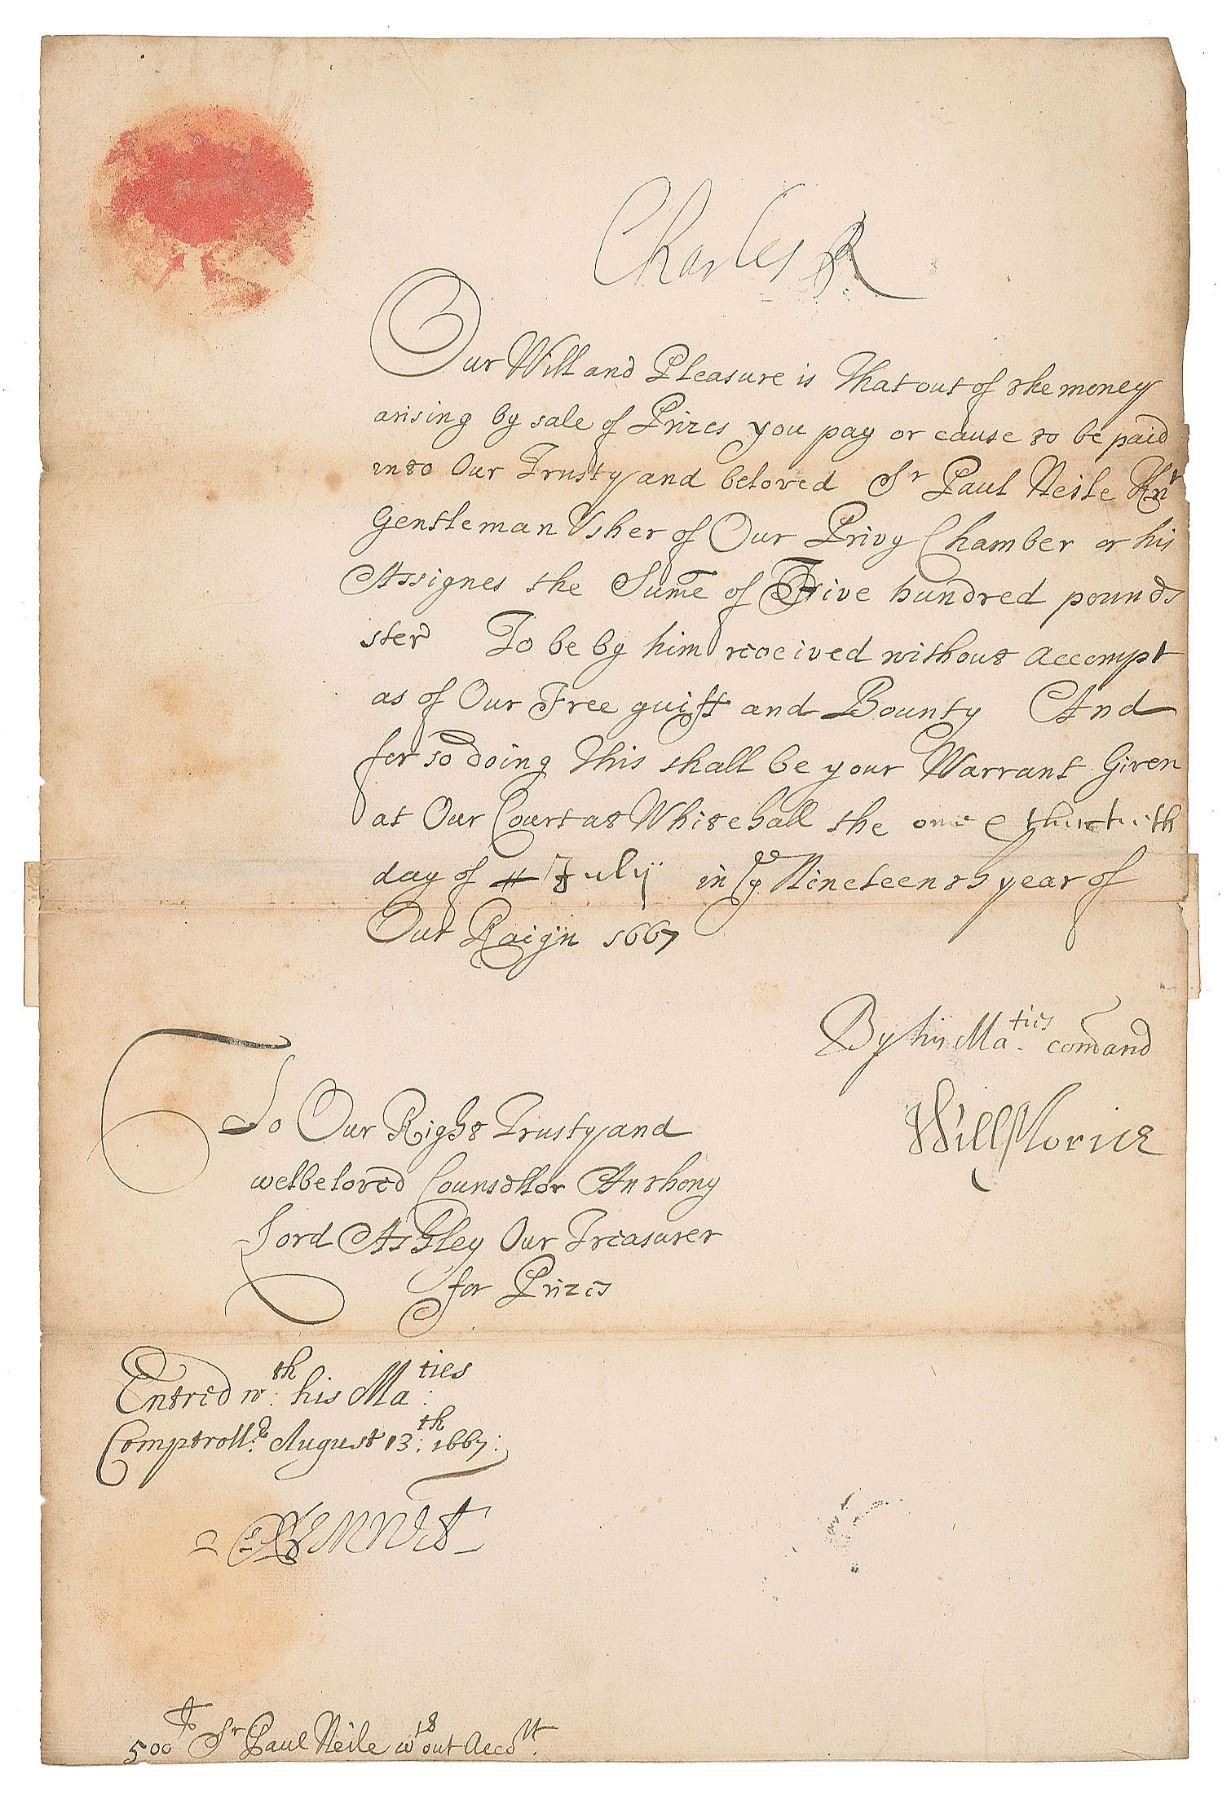 Charles R
Our Will and Pleasure is That out of the money
arising by sale of Prizes you pay or cause to be paid
unto Our Trusty and beloved Sr Paul Neile Knt
Gentleman Usher of Our Privy Chamber or his
Assignes the Sume of Five hundred pounds
ster To be by him received without Accompt
as of Our Free guift and Bounty And
for so doing This shall be your Warrant Given
at Our Court at Whitehall the one & thirtieth
day of July in ye Nineteenth year of
Our Raign 1667
By his Maties comand
Will Morice
To Our Right Trusty and
welbeloved Counsellor Anthony
Lord Ashley Our Treasurer
for Prizes
Entred wth: his Maties:
Comptrollr: August 13th: 1667:
500 Sr Paul Neile wthout Accott.